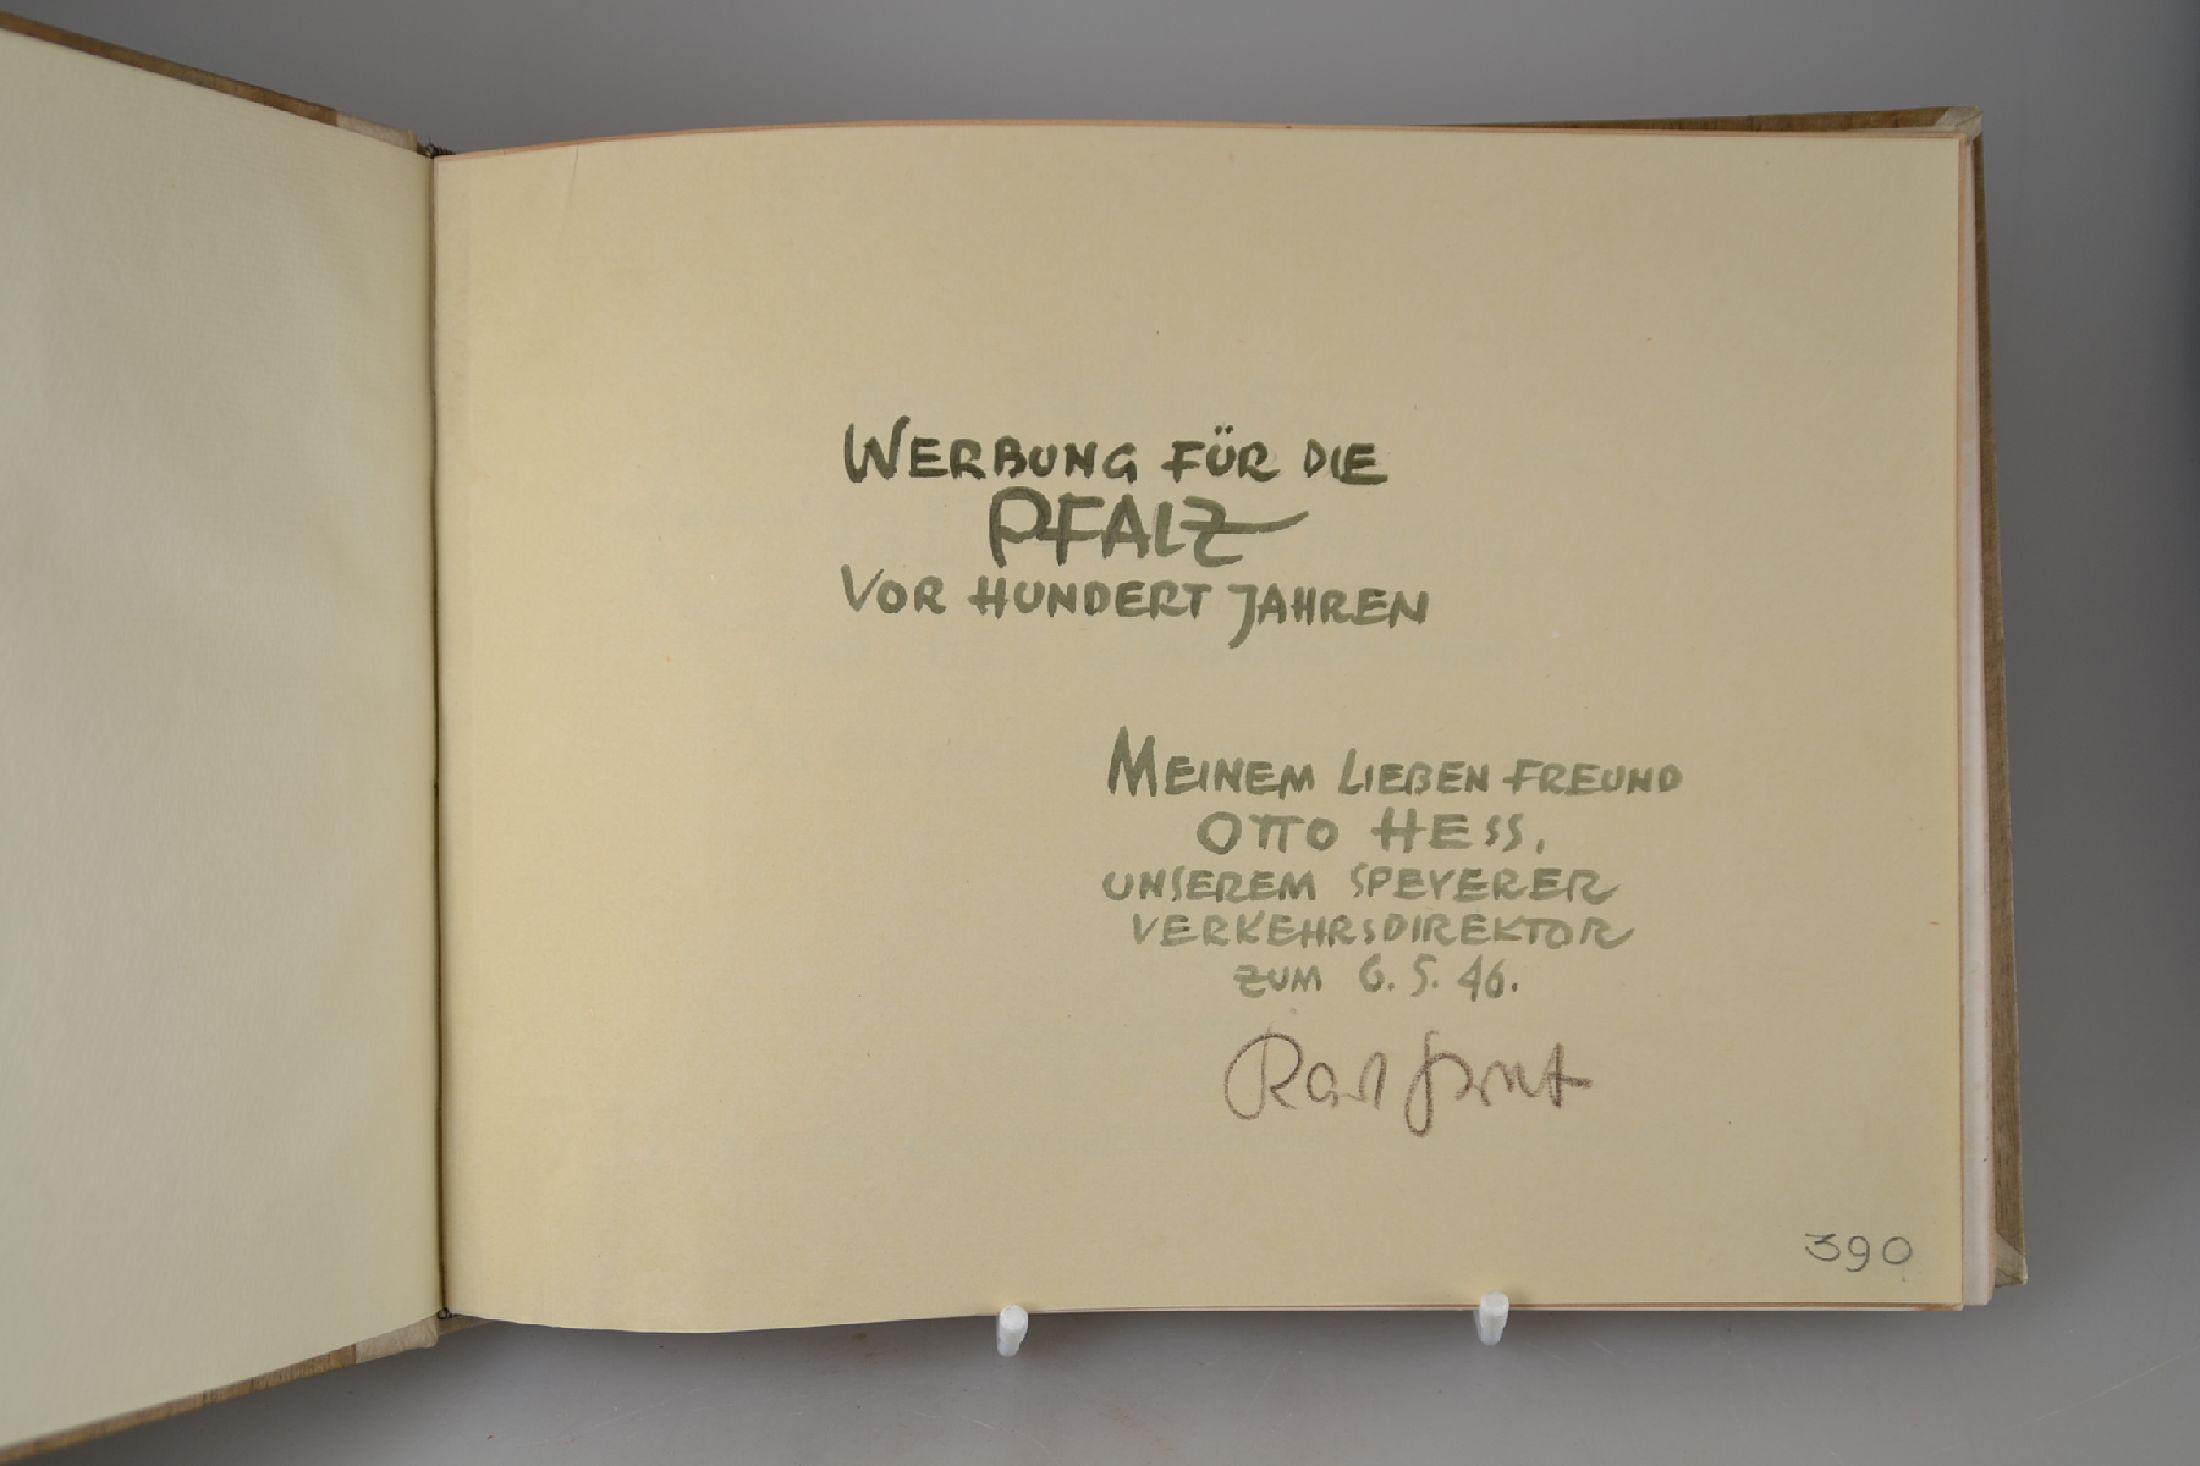 WERBUNG FÜR DIE
PFALZ
VOR HUNDERT JAHREN
MEINEM LIEBEN FREUND
OTTO HESS,
UNSEREM SPEYERER
VERKEHRSDIREKTOR
ZUM 6. 5. 46.
Karl
390